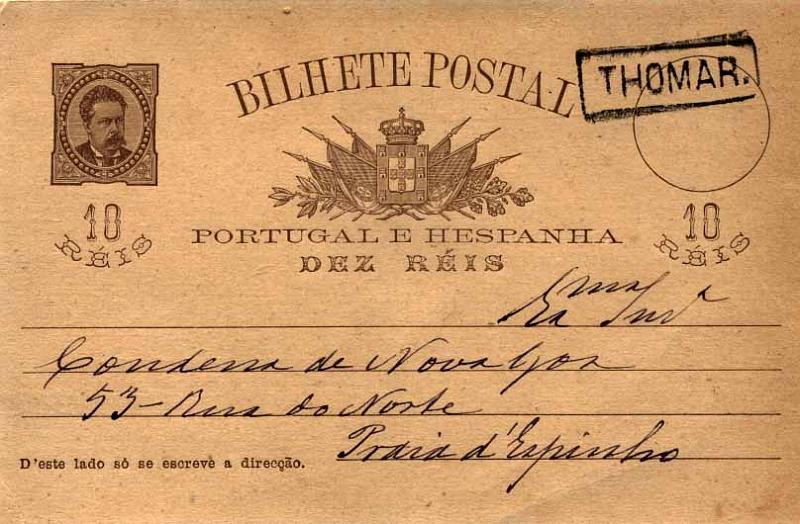 BILHETE POSTAL
THOMAR.
10 RÉIS
10 RÉIS
PORTUGAL E HESPANHA
DEZ RÉIS
Exma Snra
Condessa de Nova Goa
53- Rua do Norte
Praia d'Espinho
D'este lado só se escreve a direcção.